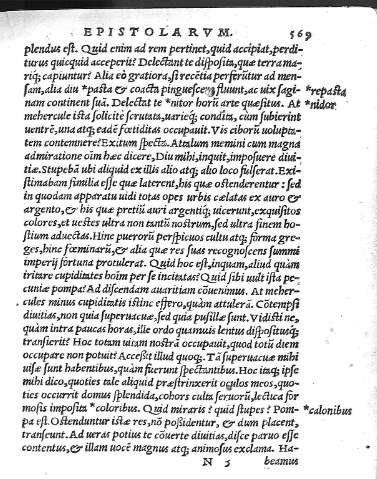 EPISTOLARVM. 569
plendus est. Quid enim ad rem pertinet, quid accipiat, perdi-
turus quicquid acceperit? Delectant te disposita, quæ terra ma-
riq; capiuntur? Alia eò gratiora, si recētia perferūtur ad men-
sam, alia diu *pasta & coacta pinguescere, fluunt, ac uix sagi- *repasta
nam continent suā. Delectat te *nitor horū arte quæsitus. At *nidor
mehercule ista solicitè scrutata, uarieq; condita, cùm subierint
uentrē, una atq; eadē fœditas occupauit. Vis ciborū uolupta-
tem contemnere? Exitum specta. Attalum memini cum magna
admiratione oīm hæc dicere, Diu mihi, inquit, imposuere diui-
tiæ. Stupebā ubi aliquid ex illis alio atq; alio loco fulserat. Exi-
stimabam similia esse quæ laterent, his quæ ostenderentur: sed
in quodam apparatu uidi totas opes urbis cælatas ex auro &
argento, & his quæ pretiū auri argentiq; uicerunt, exquisitos
colores, et uestes ultra non tantū nostrum, sed ultra finem ho-
stium aduectas. Hinc puerorū perspicuos cultu atq; forma gre-
ges, hinc fœminarū, & alia quæ res suas recognoscens summi
imperij fortuna protulerat. Quid hoc est, inquam, aliud quàm
iritare cupiditates hoīm per se incitatas? Quid sibi uult ista pe-
cuniæ pompa? Ad discendam auaritiam cōuenimus. At meher-
cules minus cupiditatis istinc effero, quàm attulerā. Cōtempsi
diuitias, non quia superuacuæ, sed quia pusillæ sunt. Vidisti ne,
quàm intra paucas horas, ille ordo quamuis lentus dispositusq;
transierit? Hoc totam uitam nostrā occupauit, quod totū diem
occupare non potuit? Accessit illud quoq;. Tā superuacuæ mihi
uisæ sunt habentibus, quàm fuerunt spectantibus. Hoc itaq; ipse
mihi dico, quoties tale aliquid præstrinxerit oculos meos, quo-
ties occurrit domus splendida, cohors culta seruorū, lectica for
mosis imposita *coloribus. Quid miraris? quid stupes? Pom- *calonibus
pa est. Ostenduntur istæ res, nō possidentur, & dum placent,
transeunt. Ad ueras potius te cōuerte diuitias, disce paruo esse
contentus, & illam uocē magnus atq; animosus exclama. Ha-
N 5 beamus